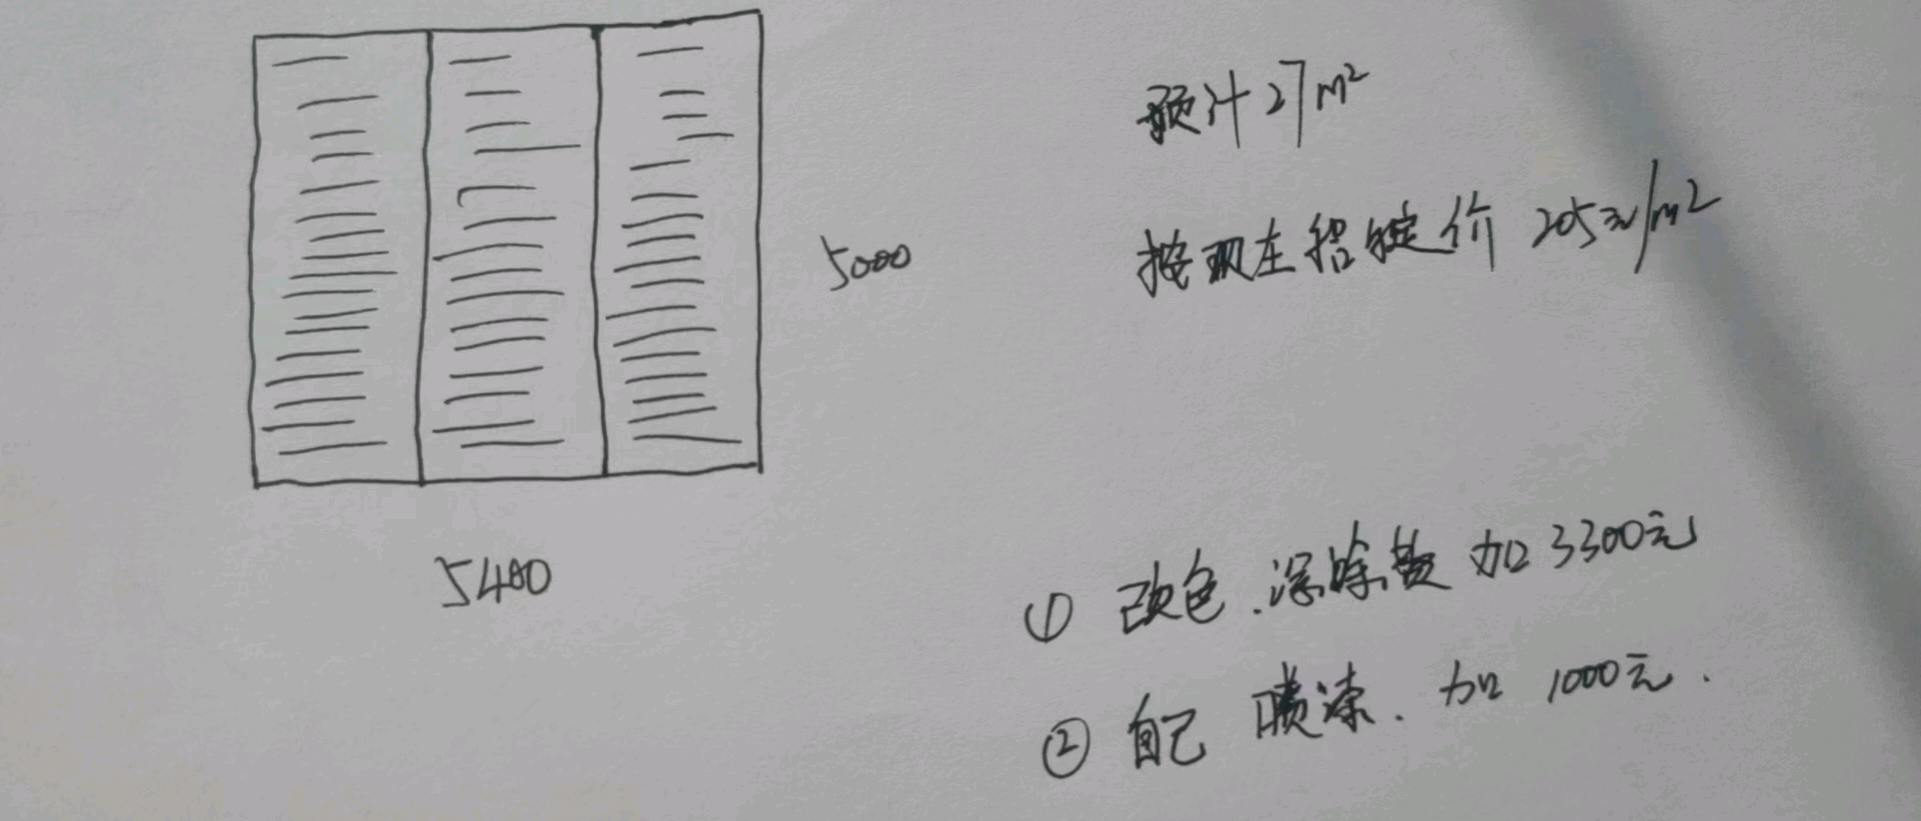 预计27m²
按现在铝锭价 205元/m²
5000
5400
① 改色.深除费 加3300元
② 自己 喷漆. 加 1000元.